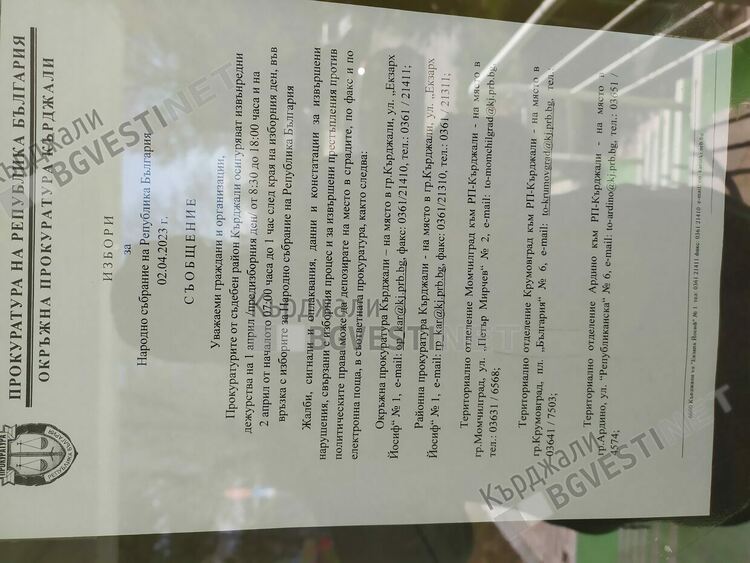 ПРОКУРАТУРА НА РЕПУБЛИКА БЪЛГАРИЯ
ОКРЪЖНА ПРОКУРАТУРА КЪРДЖАЛИ
ИЗБОРИ
за
Народно събрание на Република България
02.04.2023 г.
СЪОБЩЕНИЕ
Уважаеми граждани и организации,
Прокуратурите от съдебен район Кърджали осигуряват извънредни
дежурства на 1 април /предизборния ден/ от 8:30 до 18:00 часа и на
2 април от началото 07:00 часа до 1 час след края на изборния ден, във
връзка с изборите за Народно събрание на Република България
Жалби, сигнали и оплаквания, данни и констатации за извършени
нарушения, свързани с изборния процес и за извършени престъпления против
политическите права може да депозирате на място в сградите, по факс и по
електронна поща, в съответната прокуратура, както следва:
Окръжна прокуратура Кърджали – на място в гр.Кърджали, ул. „Екзарх
Йосиф“ № 1, e-mail: op_kar@kj.prb.bg, факс: 0361/21410, тел.: 0361 / 21411;
Районна прокуратура Кърджали - на място в гр.Кърджали, ул. „Екзарх
Йосиф“ № 1, e-mail: rp_kar@kj.prb.bg, факс: 0361/21310, тел.: 0361 / 21311;
Териториално отделение Момчилград към РП-Кърджали - на място в
гр.Момчилград, ул. „Петър Мирчев“ № 2, e-mail: to-momchilgrad@kj.prb.bg,
тел.: 03631 / 6568;
Териториално отделение Крумовград към РП-Кърджали - на място в
гр.Крумовград, пл. „България“ № 6, e-mail: to-krumovgrad@kj.prb.bg, тел.:
03641 / 7503;
Териториално отделение Ардино към РП-Кърджали - на място в
гр.Ардино, ул. “Републиканска“ № 6, e-mail: to-ardino@kj.prb.bg, тел.: 03651 /
4574;
6600 Кърджали ул. "Екзарх Йосиф" № 1 тел. 0361 21411 факс: 0361 21410
ПРОКУРАТУРА
РЕПУБЛИКА БЪЛГАРИЯ
Кърджали
BGVESTINET
Кърджали
BGVESTINET
Кърджали
BGVESTINET